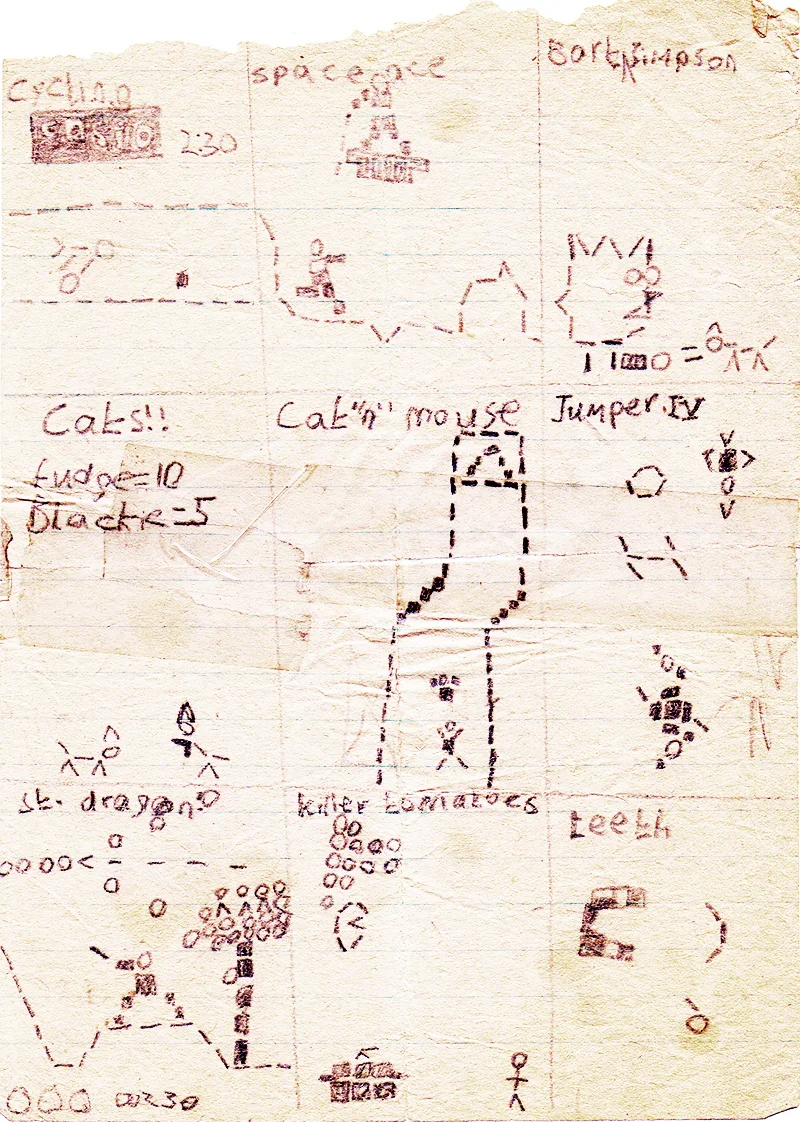 cycling
CASIO 230
space ace
Bart Simpson
Cats!!
fudge=10
Blackie=5
Cat "n" mouse
Jumper.IV
st. dragon
killer tomatoes
teeth
00230